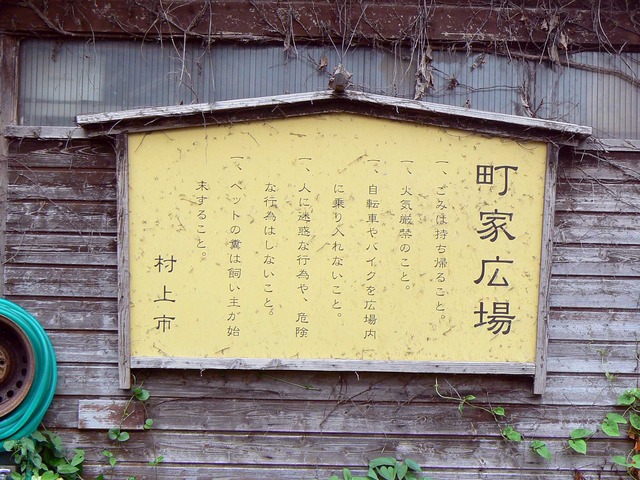 町家広場
一、ごみは持ち帰ること。
一、火気厳禁のこと。
一、自転車やバイクを広場内
に乗り入れないこと。
一、人に迷惑な行為や、危険
な行為はしないこと。
一、ペットの糞は飼い主が始
末すること。
村上市